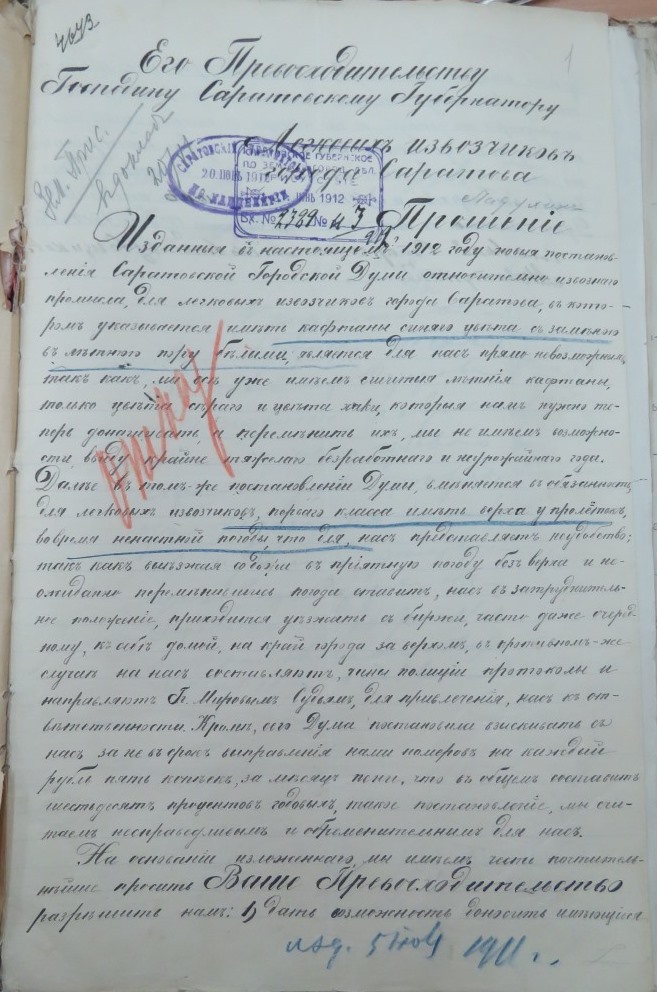 4643
1
Его Превосходительству
Господину Саратовскому Губернатору
Легковыхъ извозчиковъ
города Саратова
САРАТОВСКІЙ
20 ІЮН 1912
ПО КАНЦЕЛЯРІИ
ГУБЕРНСКОЕ
ПО ЗЕМ
1912
Вх. № 2789 № 43
Прошеніе
Изданныя въ настоящемъ 1912 году новыя постанов-
ленія Саратовской Городской Думы относительно извознаго
промысла, для легковыхъ извозчиковъ города Саратова, въ кото-
ромъ указывается имѣть кафтаны синяго цвѣта съ замѣною
въ лѣтнюю пору бѣлыми, является для насъ прямо невозможнымъ,
такъ какъ, мы всѣ уже имѣемъ сшитыя лѣтнія кафтаны,
только цвѣта сѣраго и цвѣта хаки, которыя намъ нужно те-
перь донашивать, а перемѣнить ихъ, мы не имѣемъ возможно-
сти, ввиду крайне тяжелаго безработнаго и неурожайнаго года.
Далѣе въ томъ-же постановленіи Думы, вмѣняется въ обязанность
для легковыхъ извозчиковъ, перваго класса имѣть верха у пролётокъ,
во время ненастной погоды, что для насъ представляетъ неудобство;
такъ какъ выѣзжая съ биржи въ пріятную погоду безъ верха и не-
ожиданно перемѣнившись погода ставитъ насъ въ затруднитель-
ное положеніе, приходится уѣзжать съ биржи, часто даже очеред-
ному, къ себѣ домой, на край города за верхомъ, въ противномъ-же
случаѣ на насъ составляютъ, чины полиціи протоколы и
направляютъ Г. Мировымъ Судьямъ, для привлеченія, насъ къ от-
вѣтственности. Кромѣ, сего Дума постановила взыскивать съ
насъ за не въ срокъ выправленія нами номеровъ на каждый
рубль пять копѣекъ, за мѣсяцъ пени, что въ общемъ составитъ
шестьдесятъ процентовъ годовыхъ, такое постановленіе, мы счи-
таемъ несправедливымъ и обременительнымъ для насъ.
На основаніи изложеннаго, мы имѣемъ честь почтитель-
нѣйше просить Ваше Превосходительство
разрѣшить намъ: 1) дать возможность доносить имѣющіеся
изд. 5 1911 г.